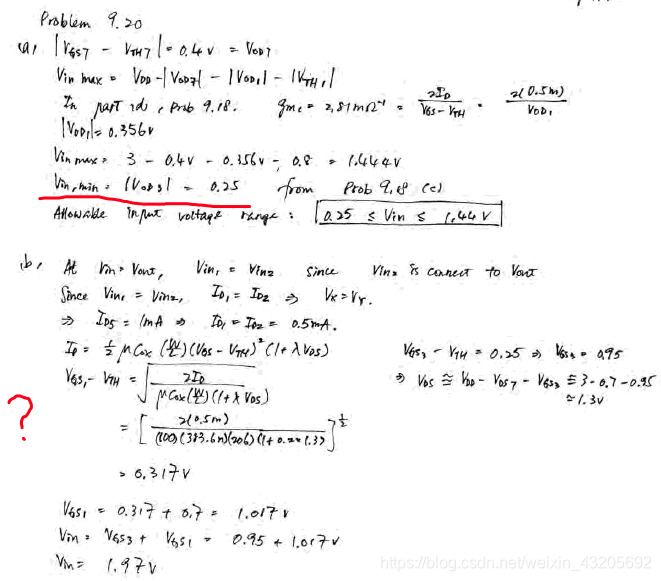 Problem 9.20
(a) |VGS7 - VTH7| = 0.4V = VOD7
Vin max = VDD - |VOD7| - |VOD1| - |VTH1|
In part (d), Prob 9.18. gm1 = 2.81mΩ⁻¹ = 2ID / (VGS - VTH) = 2(0.5m) / VOD1
|VOD1| = 0.356V
Vin max = 3 - 0.4V - 0.356V - 0.8 = 1.444V
Vin,min = |VOD3| = 0.25 from Prob 9.18 (c)
Allowable input voltage range: 0.25 ≤ Vin ≤ 1.44V
(b) At Vin = Vout, Vin1 = Vin2 since Vin2 is connect to Vout
Since Vin1 = Vin2, ID1 = ID2 ⇒ Vx = VY.
⇒ ID5 = 1mA ⇒ ID1 = ID2 = 0.5mA.
ID = 1/2 μCox (W/L)(VGS - VTH)² (1+λVDS)
VGS3 - VTH = 0.25 ⇒ VGS3 = 0.95
VGS1 - VTH = √(2ID / μCox(W/L)(1+λVDS))
⇒ VDS ≅ VDD - VDS7 - VGS3 ≅ 3 - 0.7 - 0.95
≅ 1.3V
?
= [2(0.5m) / (100)(383.6n)(206)(1+0.2×1.3)]^1/2
= 0.317V
VGS1 = 0.317 + 0.7 = 1.017V
Vin = VGS3 + VGS1 = 0.95 + 1.017V
Vin = 1.97V
https://blog.csdn.net/weixin_43205692